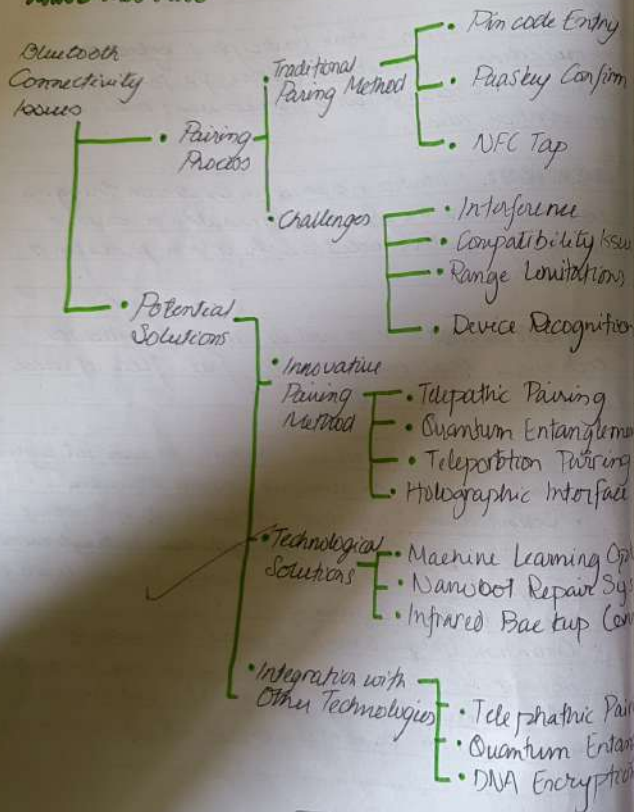 Bluetooth
Connectivity
Issues
• Pairing
Process
• Traditional
Paring Method
• Pin code Entry
• Passkey Confirm
• NFC Tap
• Challenges
• Interference
• Compatibility Issu
• Range Limitations
• Device Recognition
• Potential
Solutions
• Innovative
Pairing
Method
• Telepathic Pairing
• Quantum Entanglemen
• Teleportation Pairing
• Holographic Interface
• Technological
Solutions
• Machine Learning Op
• Nanobot Repair Sy
• Infrared Backup Con
• Integration with
Other Technologies
• Telephathic Pair
• Quantum Entan
• DNA Encryption